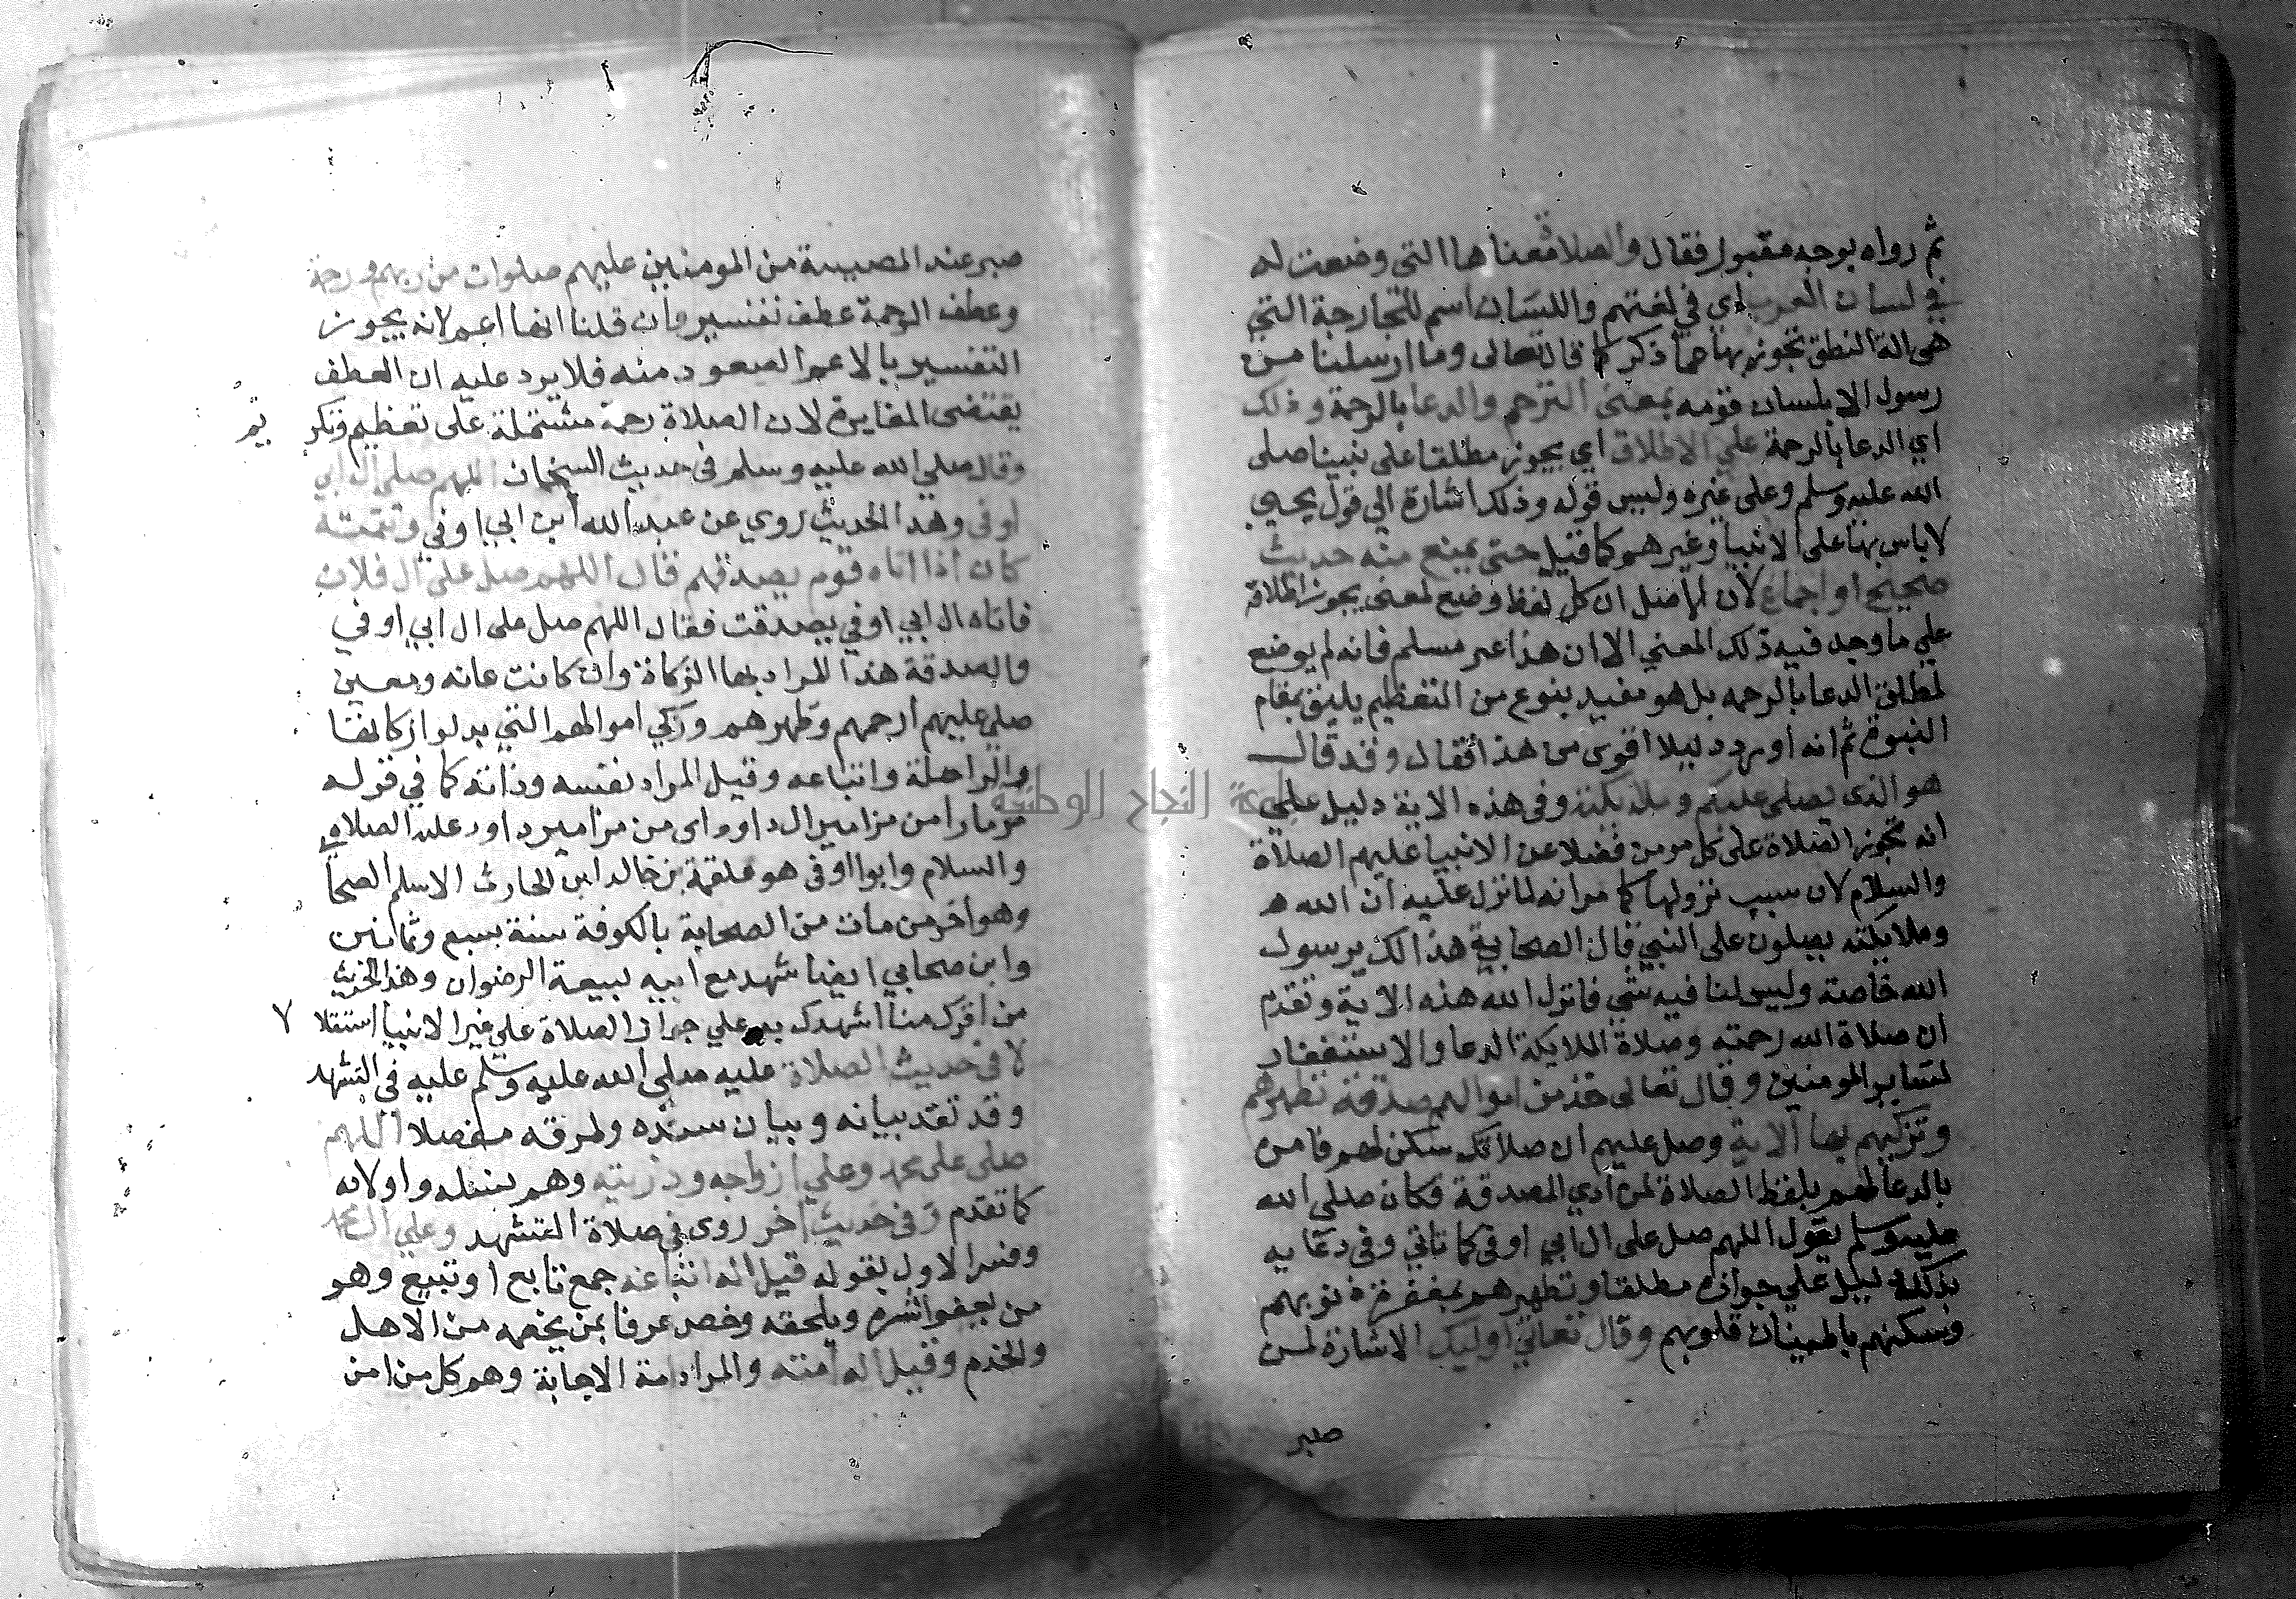 ثم رواه بوجه مقبول فقال والصلاة معناها التي وضعت له
في لسان العرب اي في لغتهم واللسان اسم للجارحة التي
هي الة النطق تجوز بها عما ذكر كما قال تعالى وما ارسلنا من
رسول الا بلسان قومه بمعنى الترحم والدعا بالرحمة وذلك
اي الدعا بالرحمة علي الاطلاق اي يجوز مطلقا على نبينا صلى
الله عليه وسلم وعلى غيره وليس قوله وذلك اشارة الي قول يحيي
لا باس بها على الانبيا وغيرهم كما قيل حتى يمنع منه حديث
صحيح او اجماع لان الاصل ان كل لفظ وضع لمعنى يجوز اطلاقه
علي ما وجد فيه ذلك المعني الا ان هذا غير مسلم فانه لم يوضع
لمطلق الدعا بالرحمه بل هو مفيد بنوع من التعظيم يليق بمقام
النبوة ثم انه اورد دليلا اقوى من هذا فقال وقد قال
هو الذي يصلي عليكم وملائكته وفي هذه الاية دليل علي
انه تجوز الصلاة على كل مومن فضلا عن الانبيا عليهم الصلاة
والسلام لان سبب نزولها كما مر انه لما نزل عليه ان الله
وملايكته يصلون على النبي قال الصحابة هذا لك يرسول
الله خاصة وليس لنا فيه شي فانزل الله هذه الاية وتقدم
ان صلاة الله رحمته وصلاة الملايكة الدعا والاستغفار
لساير المومنين وقال تعالى خذ من اموالهم صدقة تطهرهم
وتزكيهم بها الاية وصل عليهم ان صلاتك سكن لهم فامر
بالدعا لهم بلفظ الصلاة لمن ادي الصدقة فكان صلى الله
عليه وسلم يقول اللهم صل على ال ابي اوفى كما ياتي وفى دعايه
بذلك دليل علي جوازه مطلقا وتطهيرهم بمغفرة ذنوبهم
وسكنهم باطمينان قلوبهم وقال تعالي اوليك الاشارة لمن
صبر
صبر عند المصيبة من المومنين عليهم صلوات من ربهم ورحمة
وعطف الرحمة عطف تفسير وان قلنا انها اعم لانه يجوز
التفسير بالاعم المقصود منه فلا يرد عليه ان العطف
يقتضى المغايرة لان الصلاة رحمة مشتملة على تعظيم وتكر
يم
وقال صلي الله عليه وسلم فى حديث الشيخان اللهم صلى ال ابي
اوفى وهذا الحديث روي عن عبد الله ابن ابي اوفي وتتمته
كان اذا اتاه قوم بصدقتهم قال اللهم صل على ال فلان
فاتاه ال ابي اوفي بصدقت فقال اللهم صل على ال ابي اوفي
والصدقة هذا المراد بها الزكاة وان كانت عامه ومعنى
صلي عليهم ارحمهم وطهرهم وزكي اموالهم التي بدلوا زكاتها
والراحلة واتباعه وقيل المراد نفسه وذاته كما في قوله
مزمارا من مزامير ال داود اى من مزامير داود عليه الصلاه
والسلام وابوا اوفى هو علقمة بن خالد ابن الحارث الاسلم الصحا
وهو اخر من مات من الصحابة بالكوفة سنة سبع وثمانين
وابن صحابي ايضا شهد مع ابيه لبيعة الرضوان وهذا الحديث
من اقرك منا اشهدك به علي جواز الصلاة على غير الانبيا استقلا
لا
فى حديث الصلاة عليه صلي الله عليه وسلم عليه في التشهد
وقد تقد بيانه وبيان سنده وطرقه مفصلا اللهم
صلى على محمد وعلي ازواجه وذريته وهم نسله واولاده
كما تقدم وفى حديث اخر روى في صلاة التشهد وعلي ال محمد
وفسر الاول بقوله قيل اله اتباعه جمع تابع او تبيع وهو
من يعفو اثره ويلحقه وخصه عرفا بمن يخصه من الاهل
والخدم وقيل اله امته والمراد امة الاجابة وهم كل من امن
جامعة النجاح الوطنية